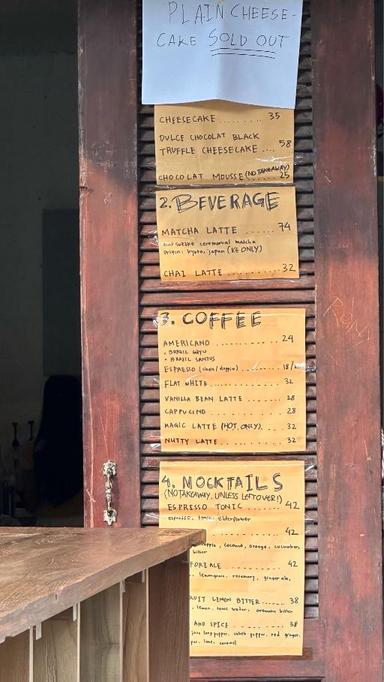 PLAIN CHEESE-
CAKE SOLD OUT
CHEESECAKE ........ 35
DULCE CHOCOLAT BLACK
TRUFFLE CHEESECAKE .... 58
CHOCOLAT MOUSSE (NO TAKEAWAY) 25
2. BEVERAGE
MATCHA LATTE ...... 74
ceremonial matcha
origin: kyoto, japan (ICE ONLY)
CHAI LATTE .......... 32
3. COFFEE
AMERICANO .......... 24
• BRASIL SANTOS
ESPRESSO ........ 18/
FLAT WHITE .......... 32
VANILLA BEAN LATTE ..... 28
CAPPUCINO .......... 28
MAGIC LATTE (HOT ONLY) ... 32
NUTTY LATTE .......... 32
4. MOCKTAILS
(NO TAKEAWAY, UNLESS LEFTOVER!)
ESPRESSO TONIC ...... 42
espresso, tonic, elderflower
42
coconut, orange, cucumber,
bitter
42
lemongrass, rosemary, ginger ale,
LEMON BITTER ..... 38
lemon, tonic water, bitter
AND SPICE ......... 38
red ginger,
lime, caramel